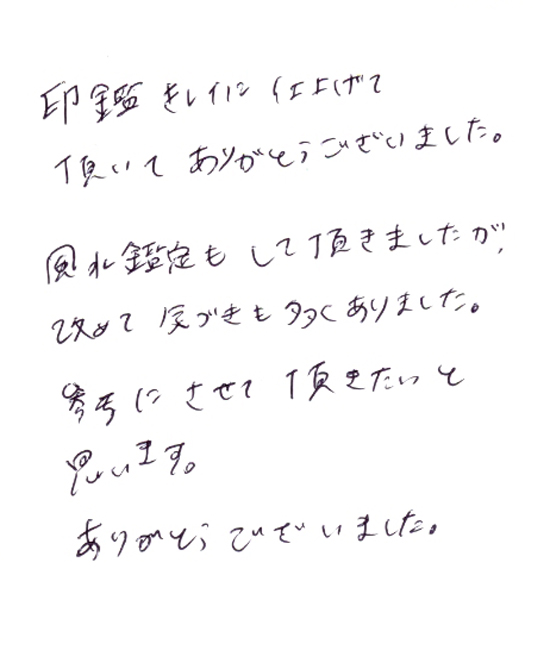 印鑑キレイに仕上げて
頂いてありがとうございました。
風水鑑定もして頂きましたが、
改めて気づきも多くありました。
参考にさせて頂きたいと
思います。
ありがとうございました。